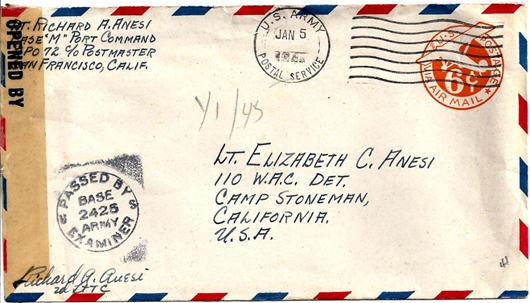 OPENED BY
Lt. RICHARD A. ANESI
BASE "M" PORT COMMAND
APO 72 C/O POSTMASTER
SAN FRANCISCO, CALIF.
U.S. ARMY
JAN 5
POSTAL SERVICE
U.S. POSTAGE
6¢
VIA AIR MAIL
1/1/45
LT. ELIZABETH C. ANESI
110 W.A.C. DET.
CAMP STONEMAN,
CALIFORNIA.
U.S.A.
PASSED BY
BASE
2425
ARMY
EXAMINER
Richard A. Anesi